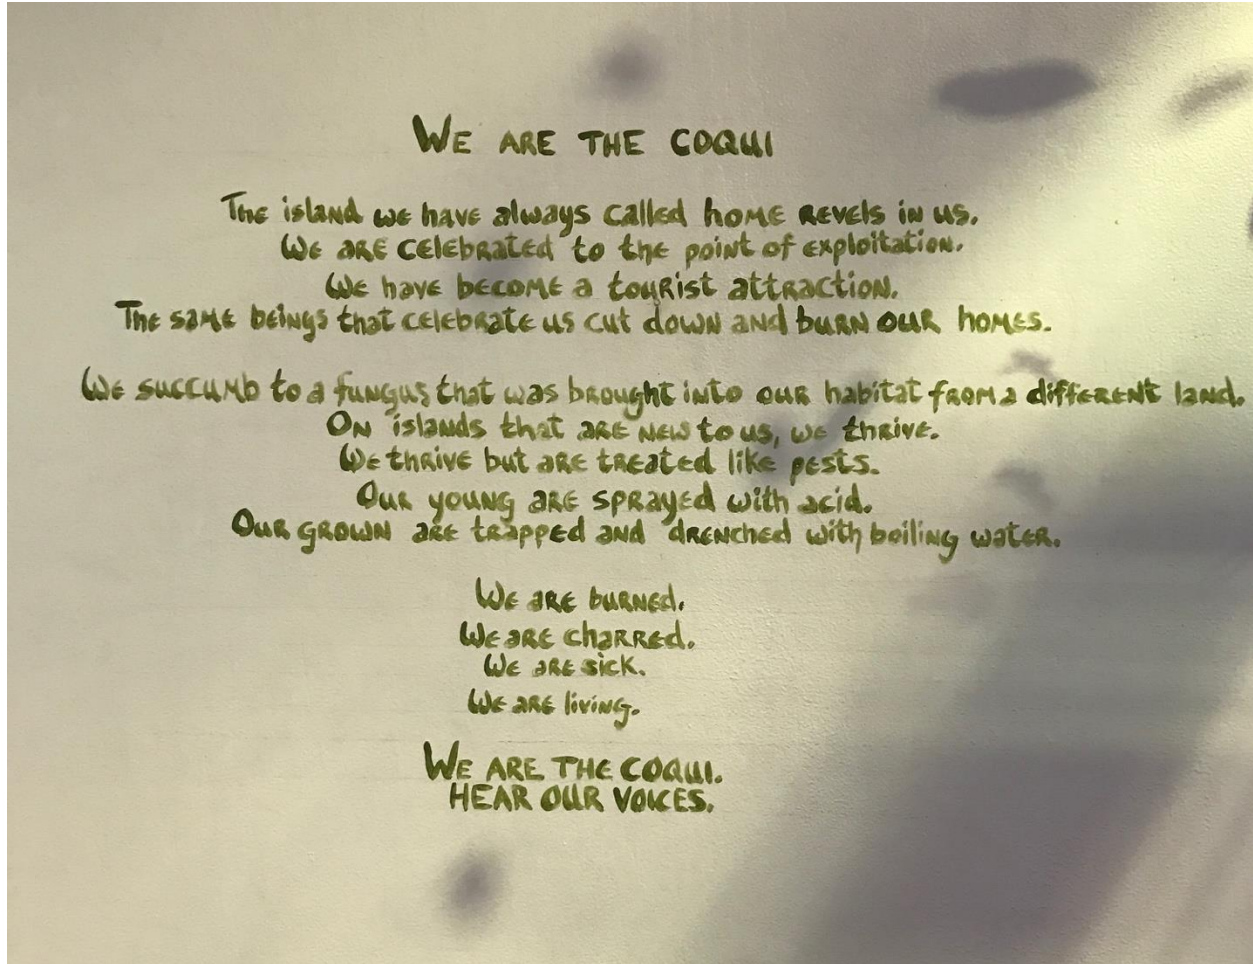 WE ARE THE COQUI
The island we have always called home revels in us.
We are celebrated to the point of exploitation.
We have become a tourist attraction.
The same beings that celebrate us cut down and burn our homes.
We succumb to a fungus that was brought into our habitat from a different land.
On islands that are new to us, we thrive.
We thrive but are treated like pests.
Our young are sprayed with acid.
Our grown are trapped and drenched with boiling water.
We are burned.
We are charred.
We are sick.
We are living.
WE ARE THE COQUI.
HEAR OUR VOICES.